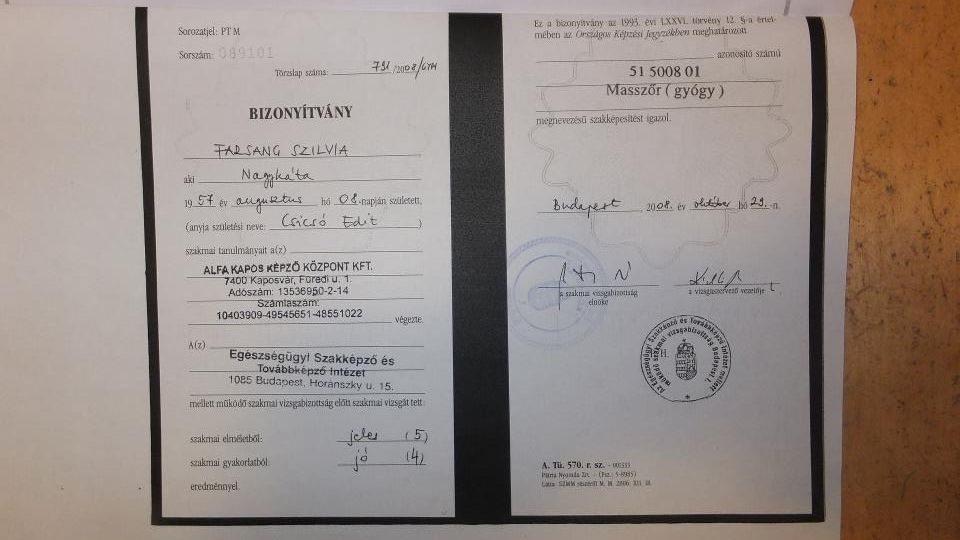 Sorozatjel: PT M
Sorszám: 089101
Törzslap száma: 791/2008/GTM
BIZONYÍTVÁNY
FARSANG SZILVIA
aki Nagykáta
1957 év augusztus hó 08.-napján született,
(anyja születési neve: Csicsó Edit)
szakmai tanulmányait a(z)
ALFA KAPOS KÉPZŐ KÖZPONT KFT.
7400 Kaposvár, Füredi u. 1.
Adószám: 13536950-2-14
Számlaszám:
10403909-49545651-48551022
végezte.
A(z)
Egészségügyi Szakképző és
Továbbképző Intézet
1085 Budapest, Horánszky u. 15.
mellett működő szakmai vizsgabizottság előtt szakmai vizsgát tett:
szakmai elméletből: jeles (5)
szakmai gyakorlatból: jó (4)
eredménnyel.
Ez a bizonyítvány az 1993. évi LXXVI. törvény 12. §-a értel-
mében az Országos Képzési Jegyzékben meghatározott
azonosító számú
51 5008 01
Masszőr ( gyógy )
megnevezésű szakképesítést igazol.
Budapest, 2008. év október hó 29.-n.
a szakmai vizsgabizottság
elnöke
a vizsgaszervező vezetője
Az Egészségügyi Szakképző és Továbbképző Intézet mellett
működő szakmai vizsgabizottság Budapest I.
H.
A. Tü. 570. r. sz. - 001333
Pátria Nyomda Zrt. - (Fsz.: 5-8985)
Látta: SZMM
2006. XII.